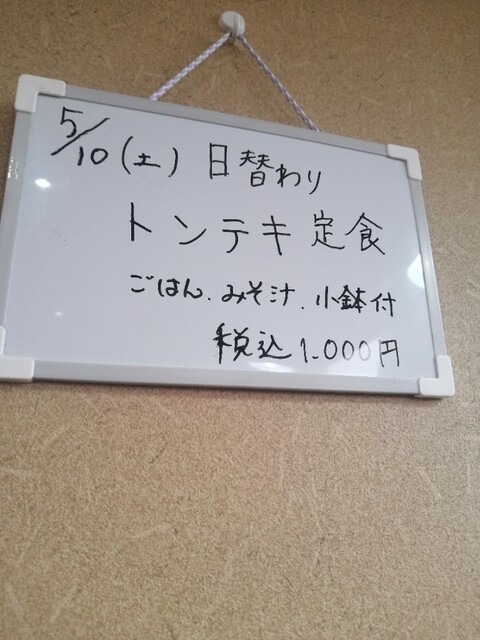 5/10(土) 日替わり
トンテキ定食
ごはん.みそ汁.小鉢付
税込1.000円